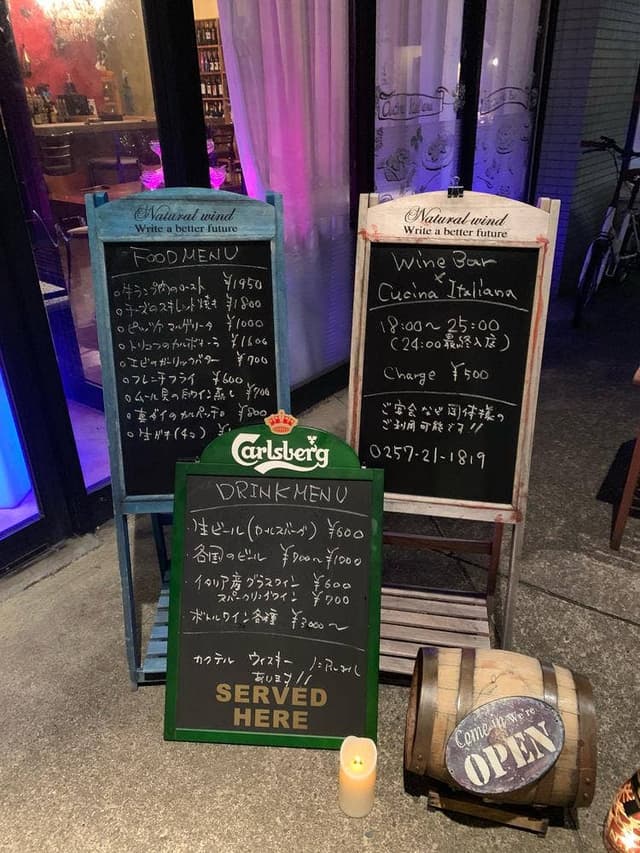 Natural wind
Write a better future
FOOD MENU
○牛ランプ肉のロースト ¥1950
○チーズのスキレット焼き ¥1800
○ピッツァ マルゲリータ ¥1000
○トリュフのカルボナーラ ¥1600
○エビのガーリックバター ¥900
○フレンチフライ ¥600
○ムール貝の白ワイン蒸し ¥900
○真ダイのカルパッチョ ¥800
○生ガキ(4コ)
Natural wind
Write a better future
Wine Bar
×
Cucina Italiana
18:00~25:00
(24:00最終入店)
Charge ¥500
ご宴会など団体様の
ご利用可能です!!
0257-21-1819
Carlsberg
DRINK MENU
・生ビール(カールスバーグ) ¥600
・各国のビール ¥900~¥1000
・イタリア産グラスワイン ¥600
スパークリングワイン ¥700
・ボトルワイン各種 ¥3000~
カクテル ウィスキー
あります!!
SERVED
HERE
Come in We're
OPEN